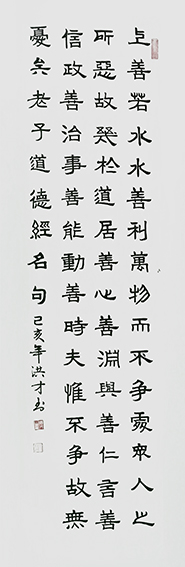 上善若水水善利萬物而不争處衆人之
所惡故幾於道居善心善淵與善仁言善
信政善治事善能動善時夫惟不争故無
憂矣老子道德經名句
己亥年洪才书